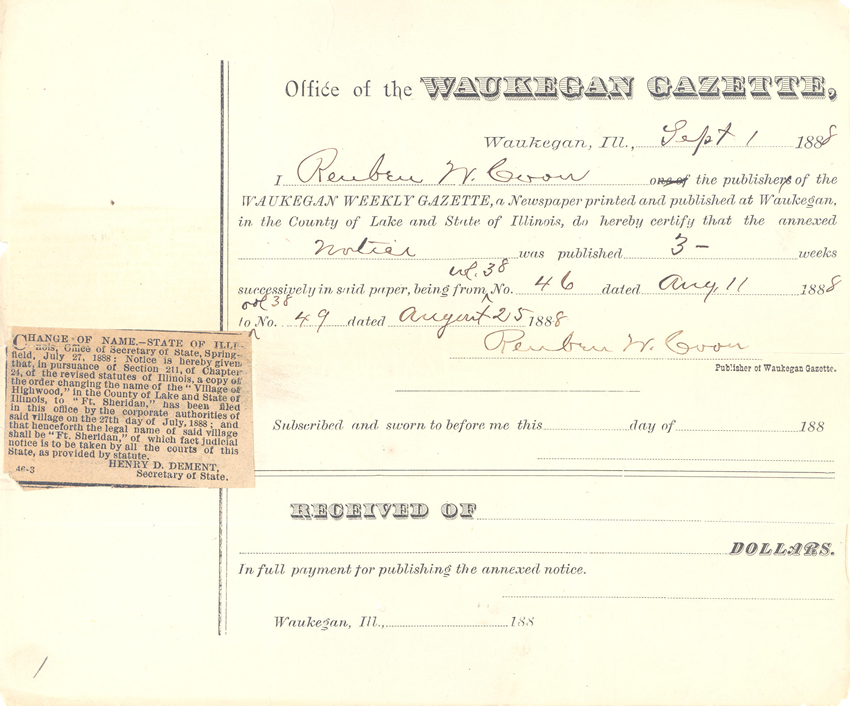 Office of the WAUKEGAN GAZETTE,
Waukegan, Ill., Sept 1 1888
I Reuben W. Coon one of the publishers of the
WAUKEGAN WEEKLY GAZETTE, a Newspaper printed and published at Waukegan,
in the County of Lake and State of Illinois, do hereby certify that the annexed
Notice was published 3- weeks
vol. 38
successively in said paper, being from No. 46 dated Aug. 11 1888
vol 38
to No. 49 dated August 25 1888
Reuben W. Coon
Publisher of Waukegan Gazette.
Subscribed and sworn to before me this day of 188
RECEIVED OF
DOLLARS.
In full payment for publishing the annexed notice.
Waukegan, Ill., 188
CHANGE OF NAME.—STATE OF ILLI-
nois, Office of Secretary of State, Spring-
field, July 27, 1888: Notice is hereby given
that, in pursuance of Section 211, of Chapter
24, of the revised statutes of Illinois, a copy of
the order changing the name of the "Village of
Highwood," in the County of Lake and State of
Illinois, to "Ft. Sheridan," has been filed
in this office by the corporate authorities of
said village on the 27th day of July, 1888; and
that henceforth the legal name of said village
shall be "Ft. Sheridan," of which fact judicial
notice is to be taken by all the courts of this
State, as provided by statute.
HENRY D. DEMENT,
Secretary of State.
46-3